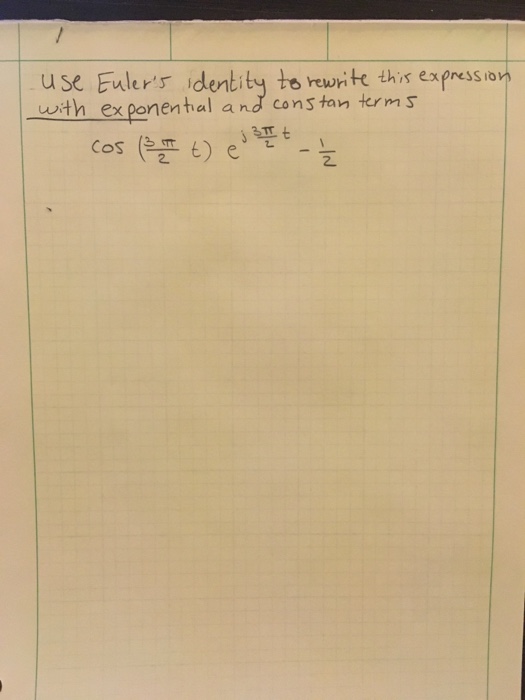 1
use Euler's identity to rewrite this expression
with exponential and constan terms
cos (3π/2 t) e^(j 3π/2 t) - 1/2